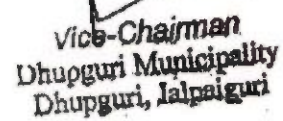 Vice-Chairman
Dhupguri Municipality
Dhupguri, Jalpaiguri